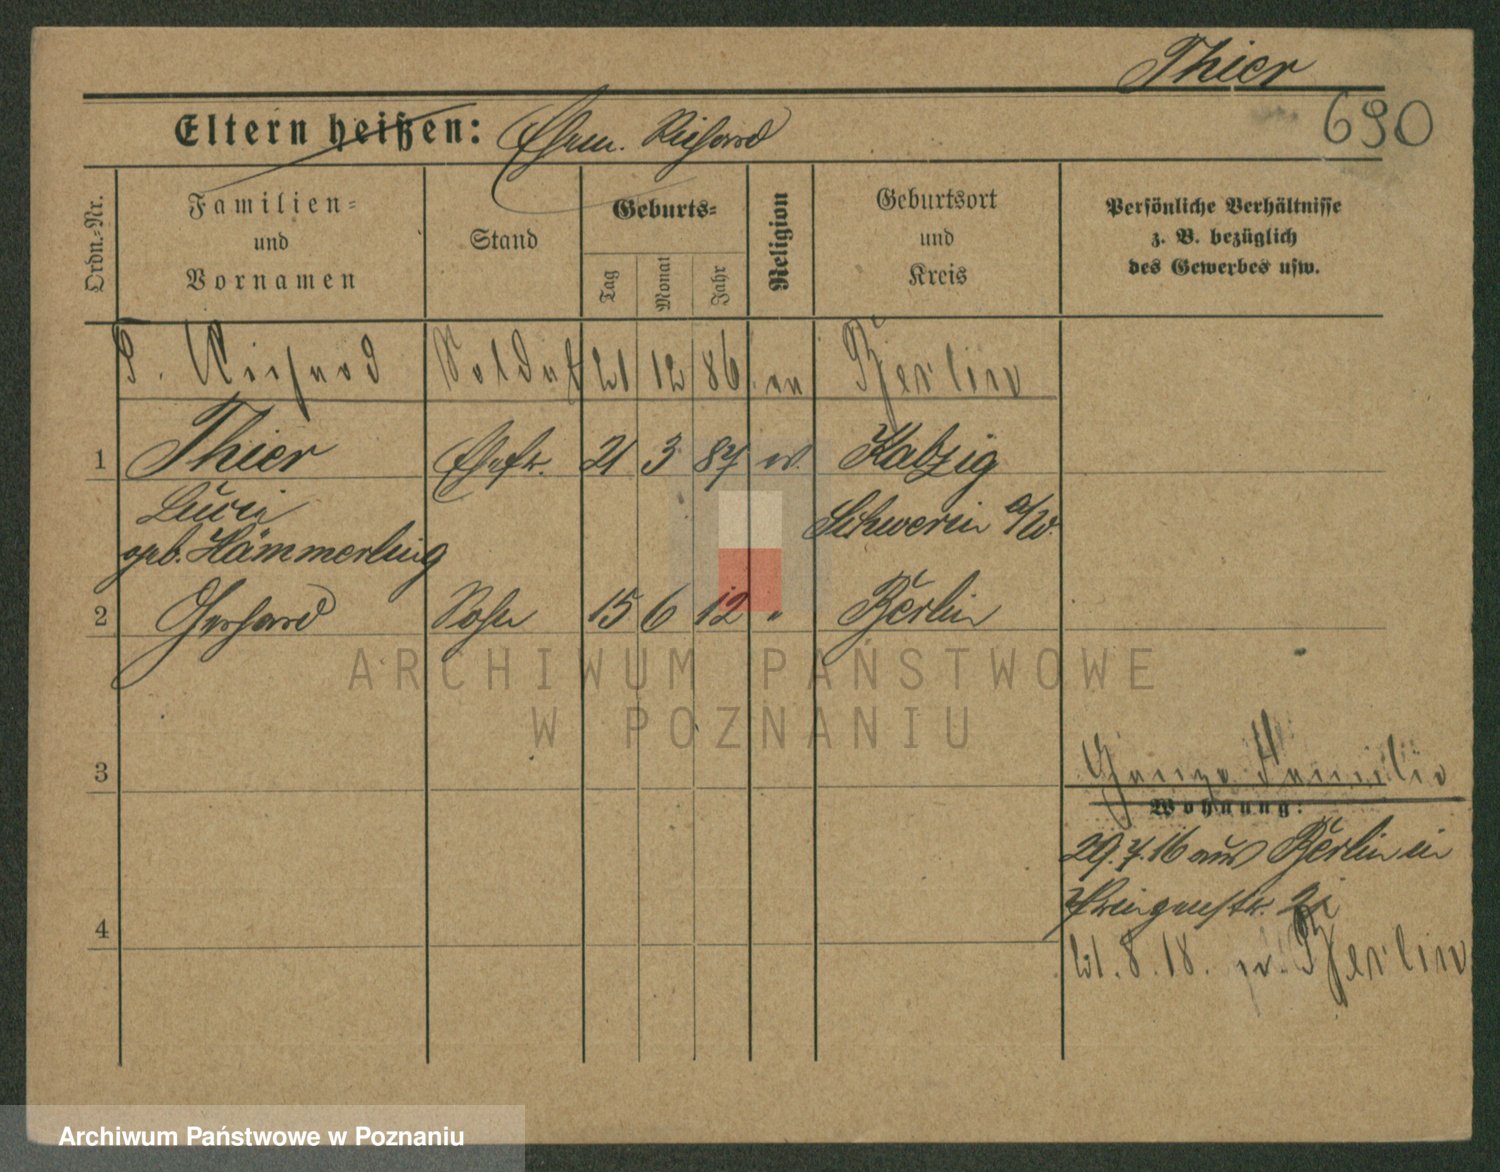 Thier
Eltern heißen: Ehem. Richard
690
Ordn.-Nr.
Familien-
und
Vornamen
Stand
Geburts-
Tag
Monat
Jahr
Religion
Geburtsort
und
Kreis
Persönliche Verhältnisse
z. B. bezüglich
des Gewerbes usw.
Richard Soldat 21 12 86 Berlin
1 Thier Ehefr. 21 3 87 ev. Kabzig
Schwerin a/W.
geb. Hämmerling
2 Gerhard Sohn 15 6 12 " Berlin
ARCHIWUM PAŃSTWOWE
W POZNANIU
3
Ganze Familie
Wohnung:
29.7.16 aus Berlin in
4
21.8.18. Berlin
Archiwum Państwowe w Poznaniu